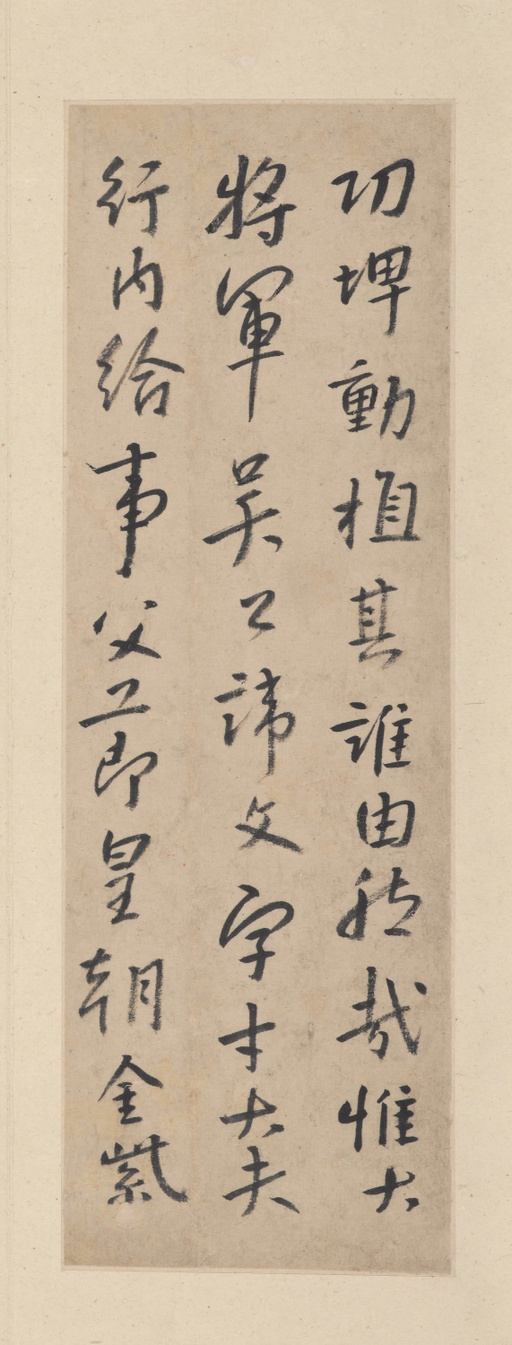 功埤動植其誰由能哉惟大
將軍吴公諱文字才大夫
行內給事父公即皇朝金紫